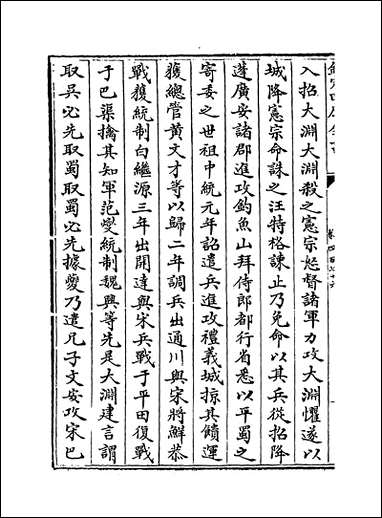 入招大淵大淵殺之憲宗怒督諸軍力攻大淵懼遂以
城降憲宗命誅之汪特格諫止乃免命以其兵從招降
蓬廣安諸郡進攻釣魚山拜侍郎都行省悉以平蜀之
寄委之世祖中統元年詔遣兵進攻禮義城掠其饋運
獲總管黄文才等以歸二年調兵出通川與宋將鮮恭
戰獲統制白繼源三年出開達與宋兵戰于平田復戰
于巴渠擒其知軍范燮統制魏興等先是大淵建言謂
取吳必先取蜀取蜀必先據夔乃遣兄子文安攻宋巴